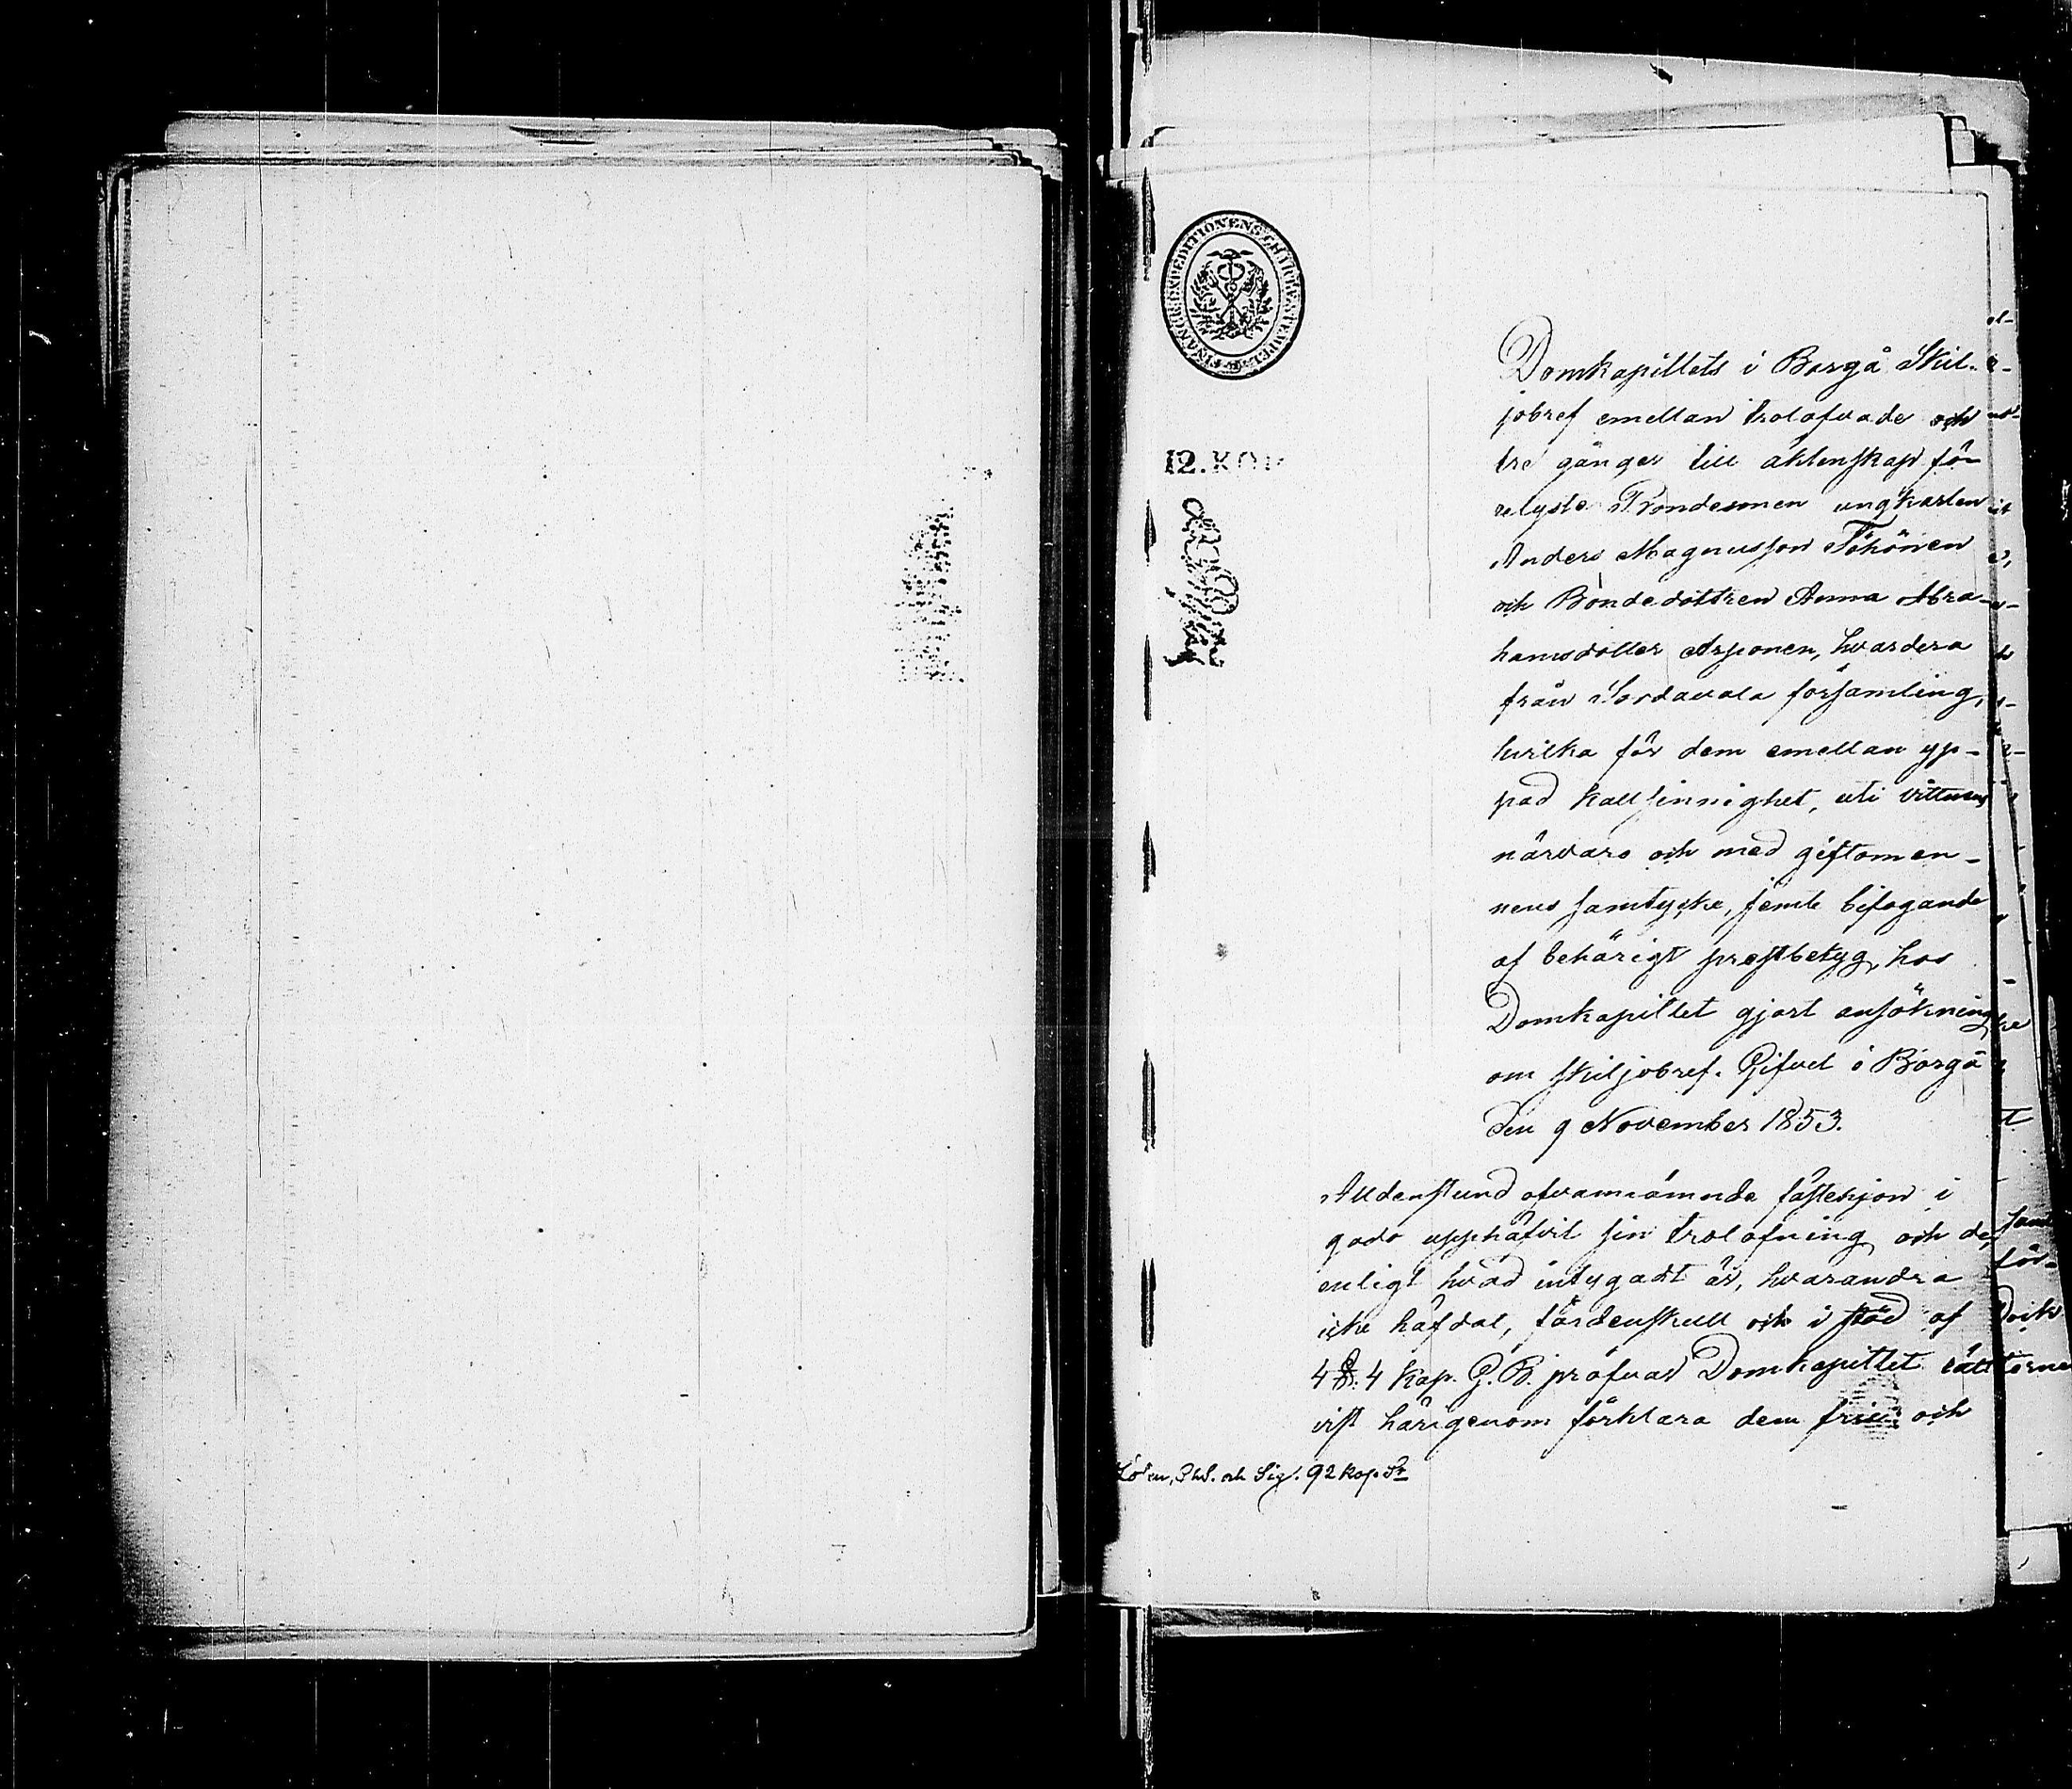 FINANCE EXPEDITIONENS CHARTÆ STEMPEL
12. KOP
Domkapitlets i Borgå Skil-
jobref emellan trolofvade och
tre gånger till äktenskap för
elyste Bondesonen ungkarlen
Anders Magnusson Tehönen
och Bondedottren Anna Abra-
hamsdotter Arponen, hvardera
från Sordavala församling,
hvilka för dem emellan yp-
pad kallsinnighet, uti vittnens
närvaro och med giftomän-
nens samtycke, jemte bifogande
af behörigt prestbetyg, hos
Domkapitlet gjort ansökning
om skiljobref. Gifvet i Borgå
den 9 November 1853.
Alldenstund ofvannämnde fästehjon i
godo upphäfvit sin trolofning och de,
enligt hvad intygadt är, hvarandra
icke häfdat, fördenskull och i stöd af
4 §. 4 Kap. G. B. pröfvar Domkapitlet rätt
vist härigenom förklara dem fria och
Lösen, Chs. och Sig. 92 kop. Sr